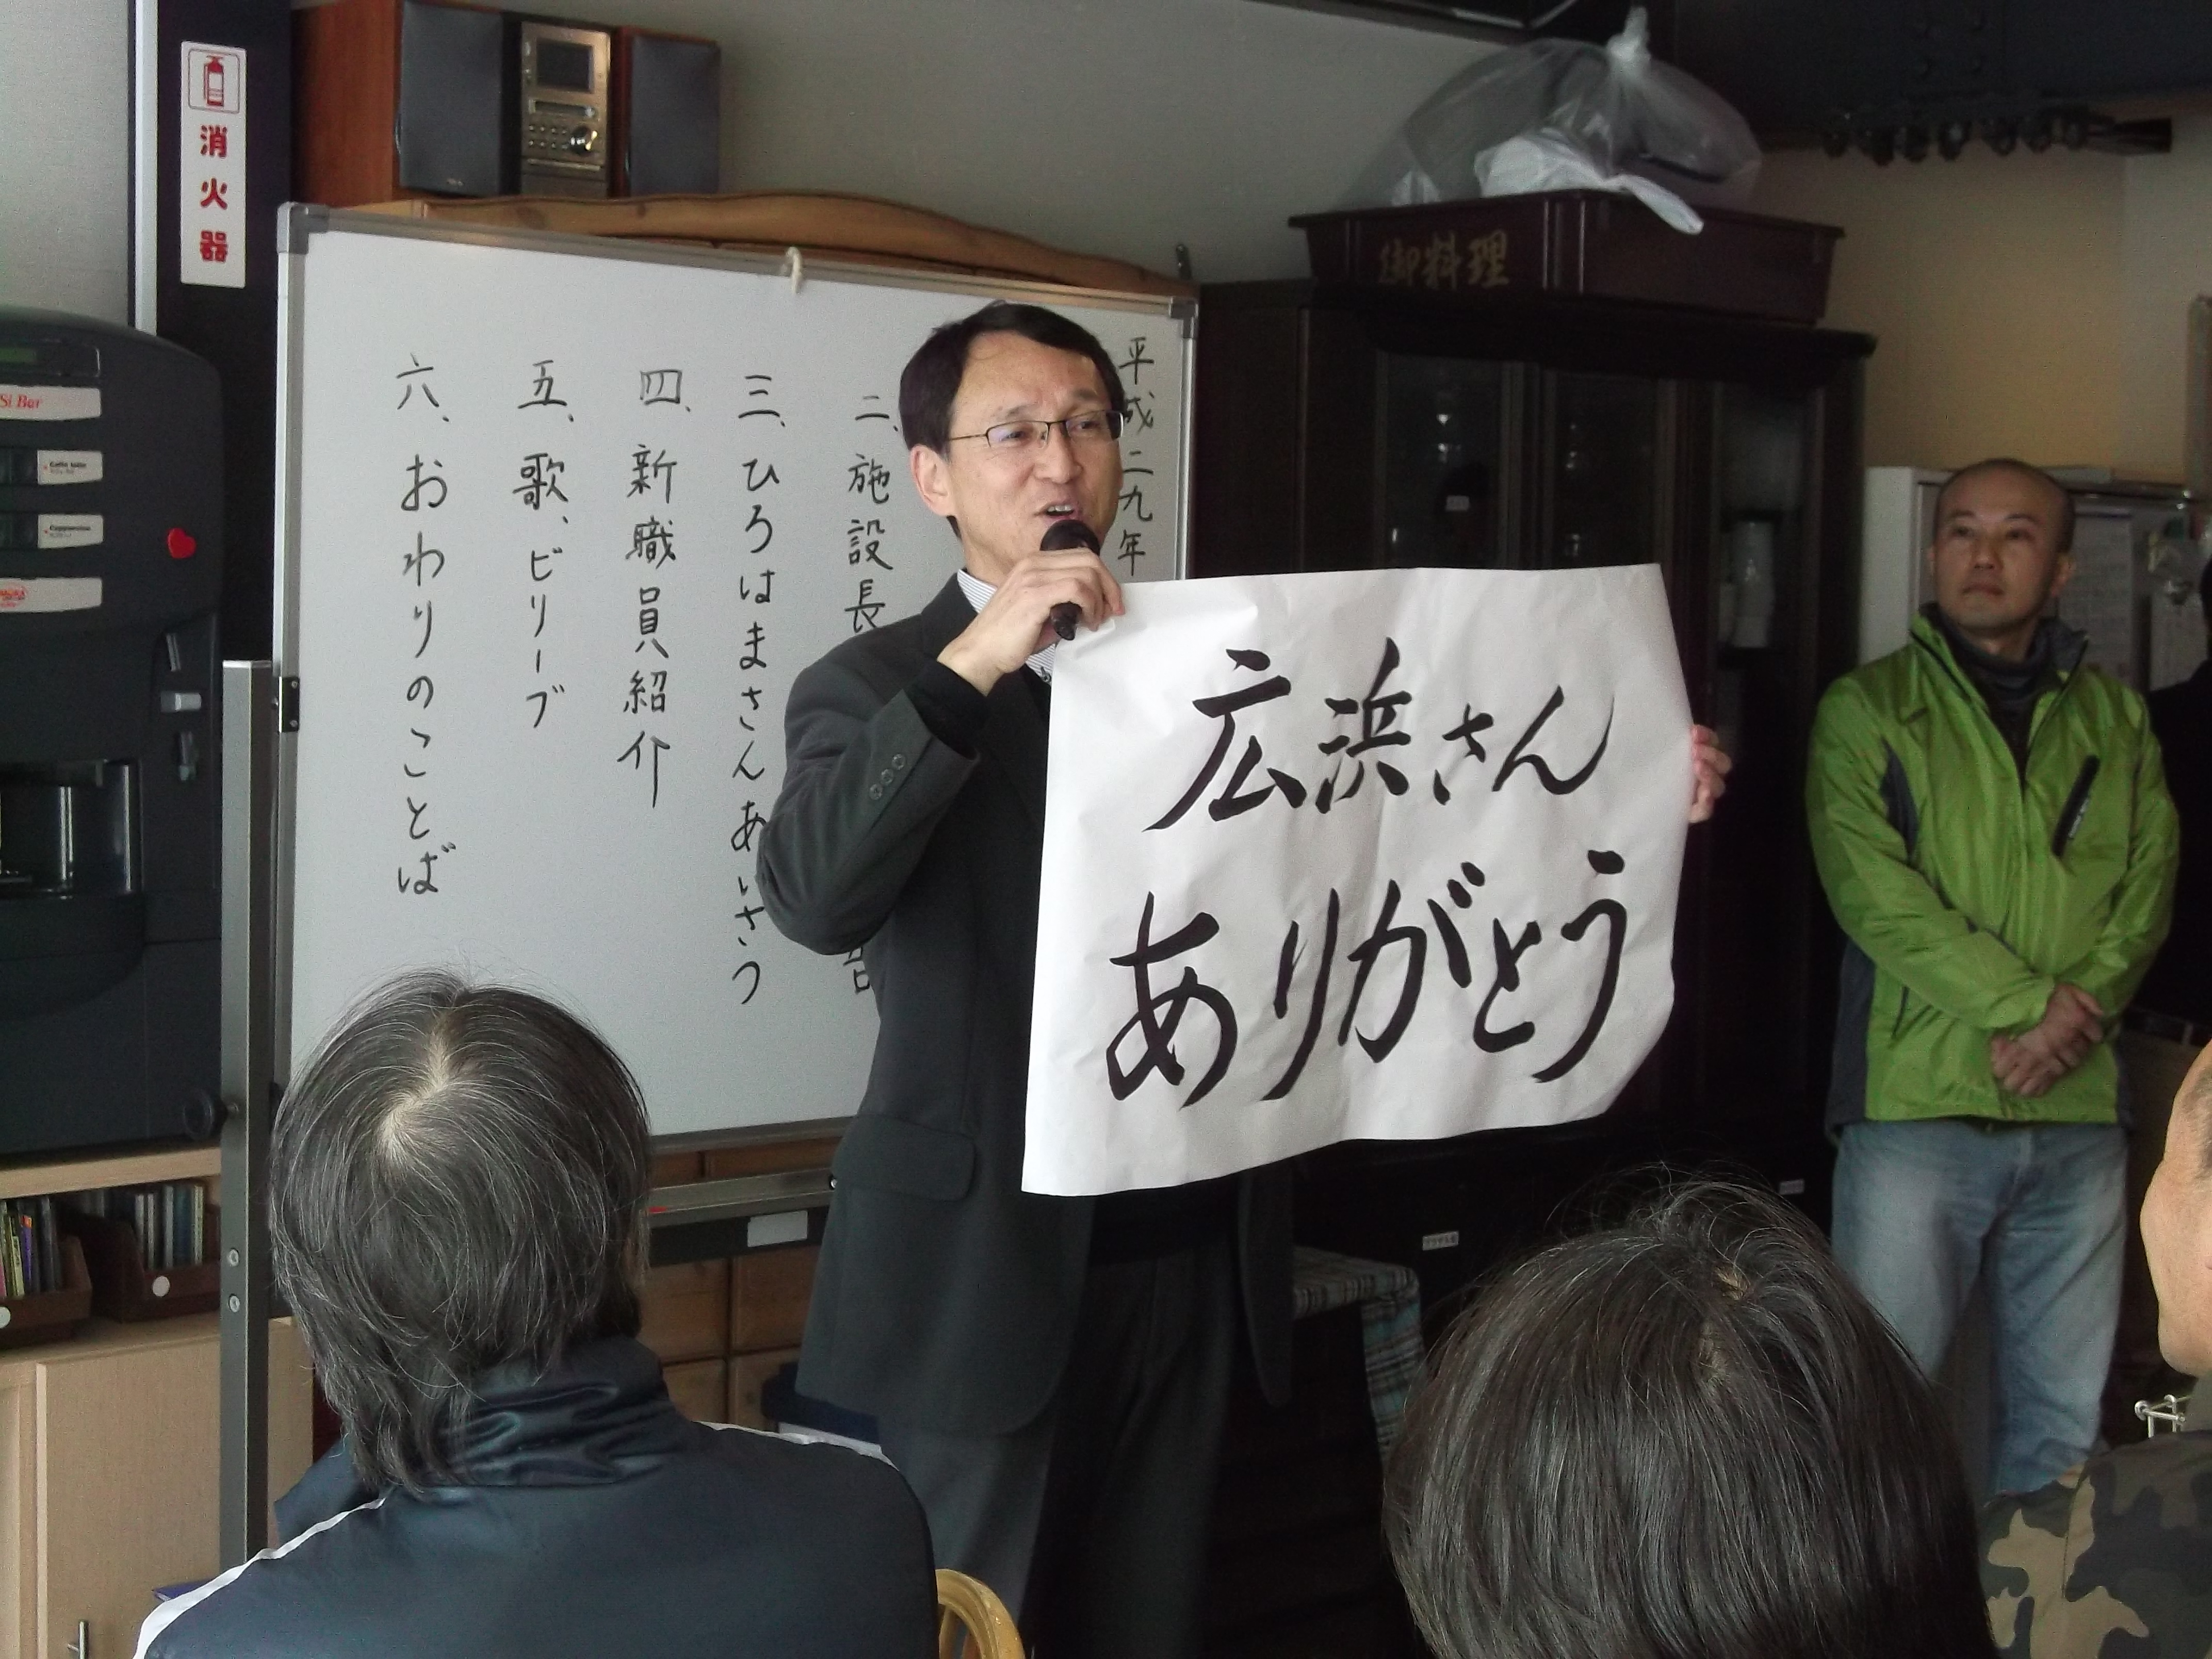 消火器
御料理
平成二九年
二、施設長
三、ひろはまさんあいさつ
四、新職員紹介
五、歌、ビリーブ
六、おわりのことば
広浜さん
ありがとう
Si Bar